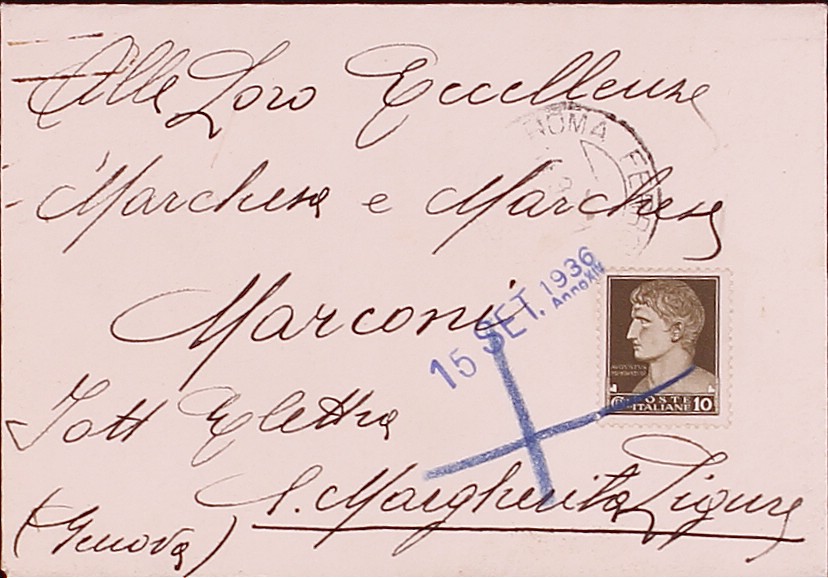 Alle Loro Eccellenze
Marchesa e Marchese
Marconi
Iatt Elettra
S. Margherita Ligure
(Genova)
ROMA FERR
15 SET. 1936
Anno XIV
POSTE
ITALIANE 10